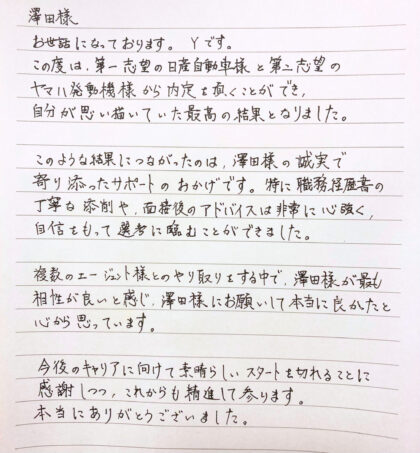 澤田様
お世話になっております。 Yです。
この度は、第一志望の日産自動車様と第二志望の
ヤマハ発動機様から内定を頂くことができ、
自分が思い描いていた最高の結果となりました。
このような結果につながったのは、澤田様の誠実で
寄り添ったサポートのおかげです。特に職務経歴書の
丁寧な添削や、面接後のアドバイスは非常に心強く、
自信をもって選考に臨むことができました。
複数のエージェント様とのやり取りをする中で、澤田様が最も
相性が良いと感じ、澤田様にお願いして本当に良かったと
心から思っています。
今後のキャリアに向けて素晴らしいスタートを切れることに
感謝しつつ、これからも精進して参ります。
本当にありがとうございました。